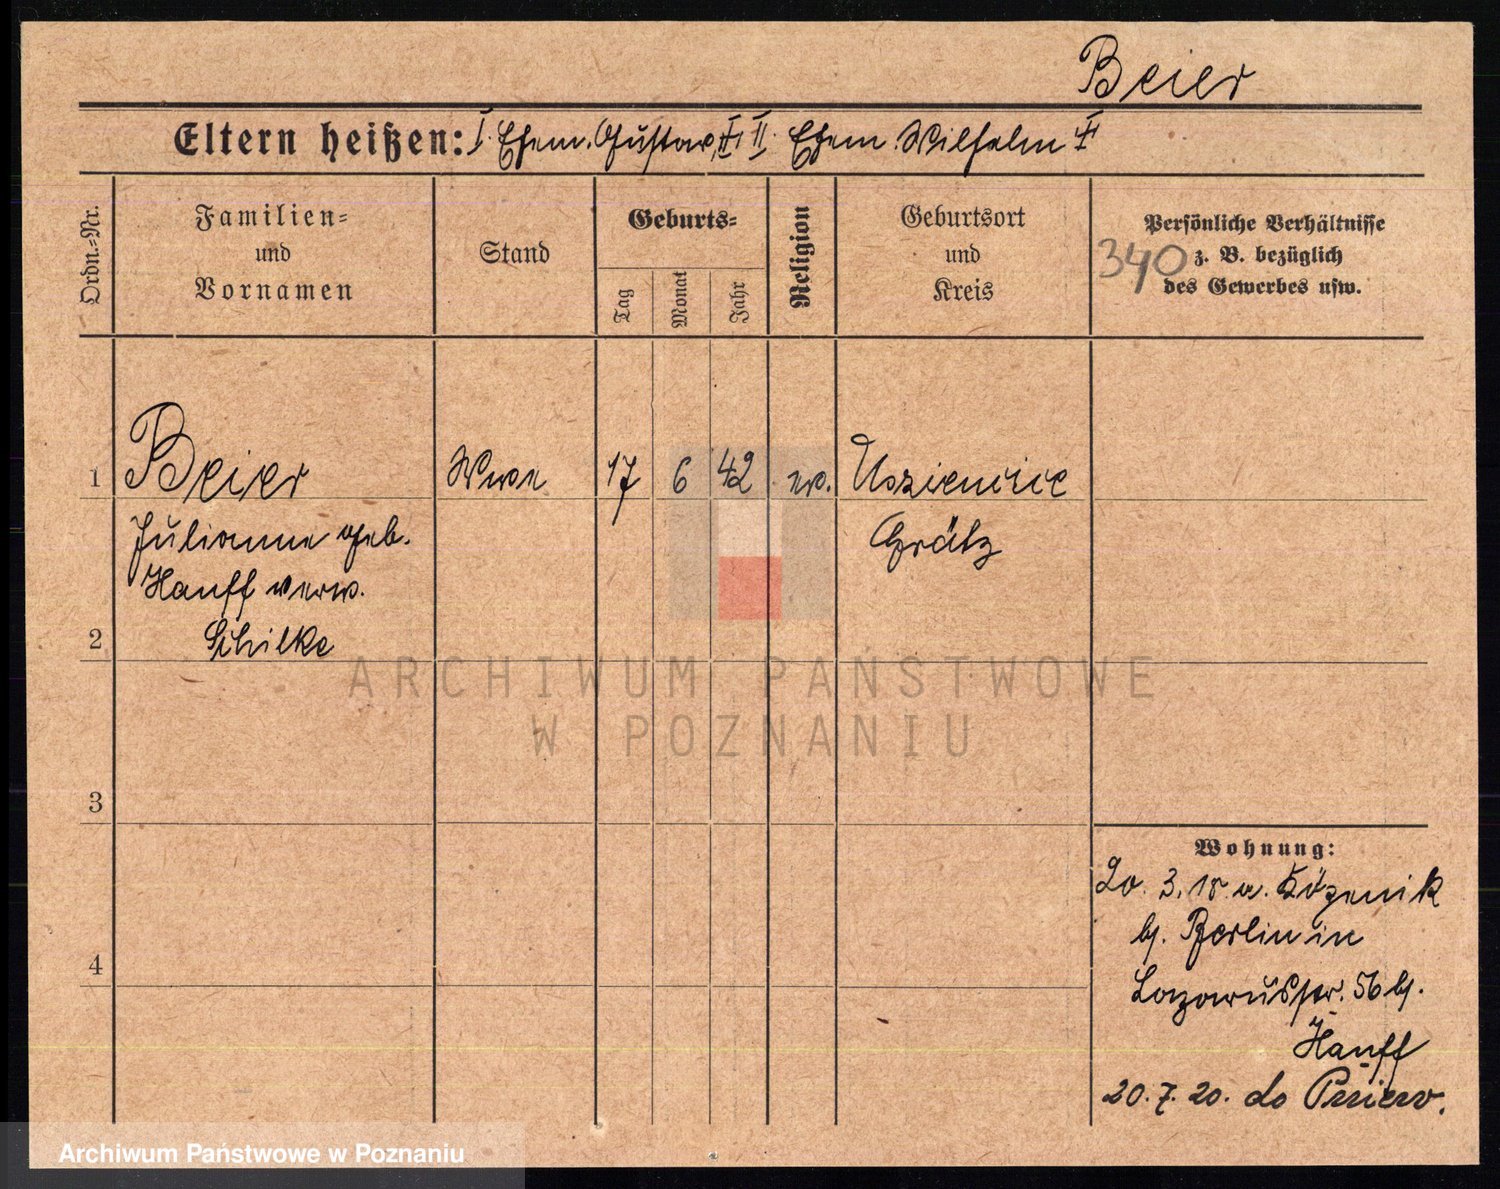 Beier
Eltern heißen: I. Ehem. Gustav, II. Ehem. Wilhelm
Ordn.=Nr.
Familien=
und
Vornamen
Stand
Geburts=
Tag
Monat
Jahr
Religion
Geburtsort
und
Kreis
Persönliche Verhältnisse
340 z. B. bezüglich
des Gewerbes usw.
1 Beier Wwe 17 6 42 ev.
Julianne geb. Grätz
Hauff verw.
2 Schilke
ARCHIWUM PAŃSTWOWE
W POZNANIU
3
Wohnung:
20. 3. 18 a.
b. Berlin in
4
Lazarusstr. 56 b.
Hauff
20. 7. 20. do
Archiwum Państwowe w Poznaniu